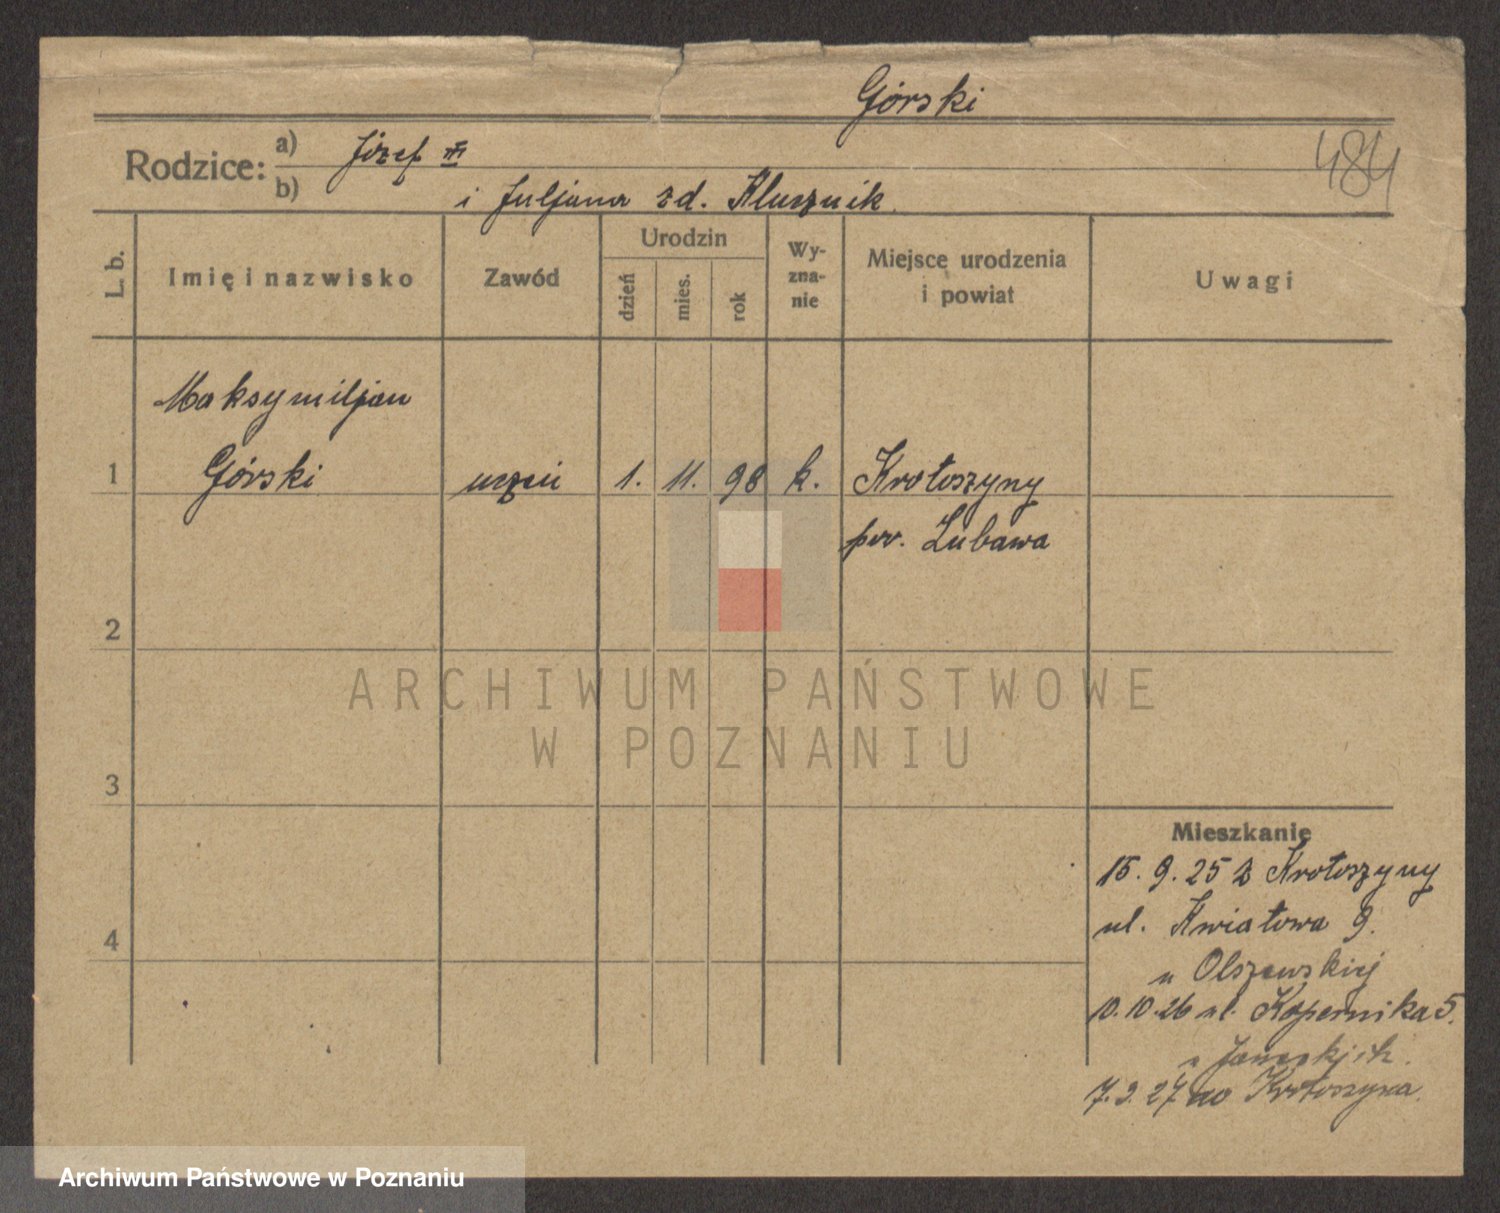 Górski
484
Rodzice: a) Józef
b) i Juljanna zd. Klusznik
L. b.
Imię i nazwisko
Zawód
Urodzin
dzień
mies.
rok
Wy-
zna-
nie
Miejsce urodzenia
i powiat
Uwagi
Maksymiljan
1 Górski uczeń 1. 11. 98 k. Krotoszyny
pow. Lubawa
2
ARCHIWUM PAŃSTWOWE
W POZNANIU
3
4
Mieszkanie
15. 9. 25 z Krotoszyny
ul. Kwiatowa 9.
u Olszewskiej
10.10.26 ul. Kopernika 5.
u
7. 2. 27 do Krotoszyna.
Archiwum Państwowe w Poznaniu